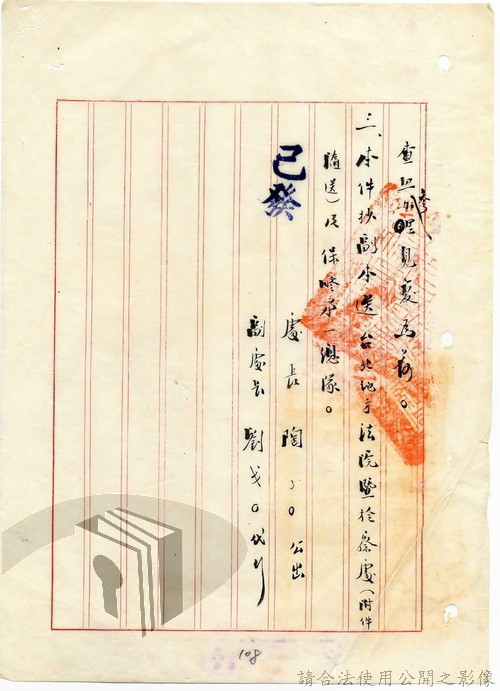 查照辦理見復為荷。
三、本件抄副本送台北地方法院暨檢察處(附件
隨送)及保警第一總隊。
處長 陶 公出
副處長 劉戈 代行
已發
108
請合法使用公開之影像